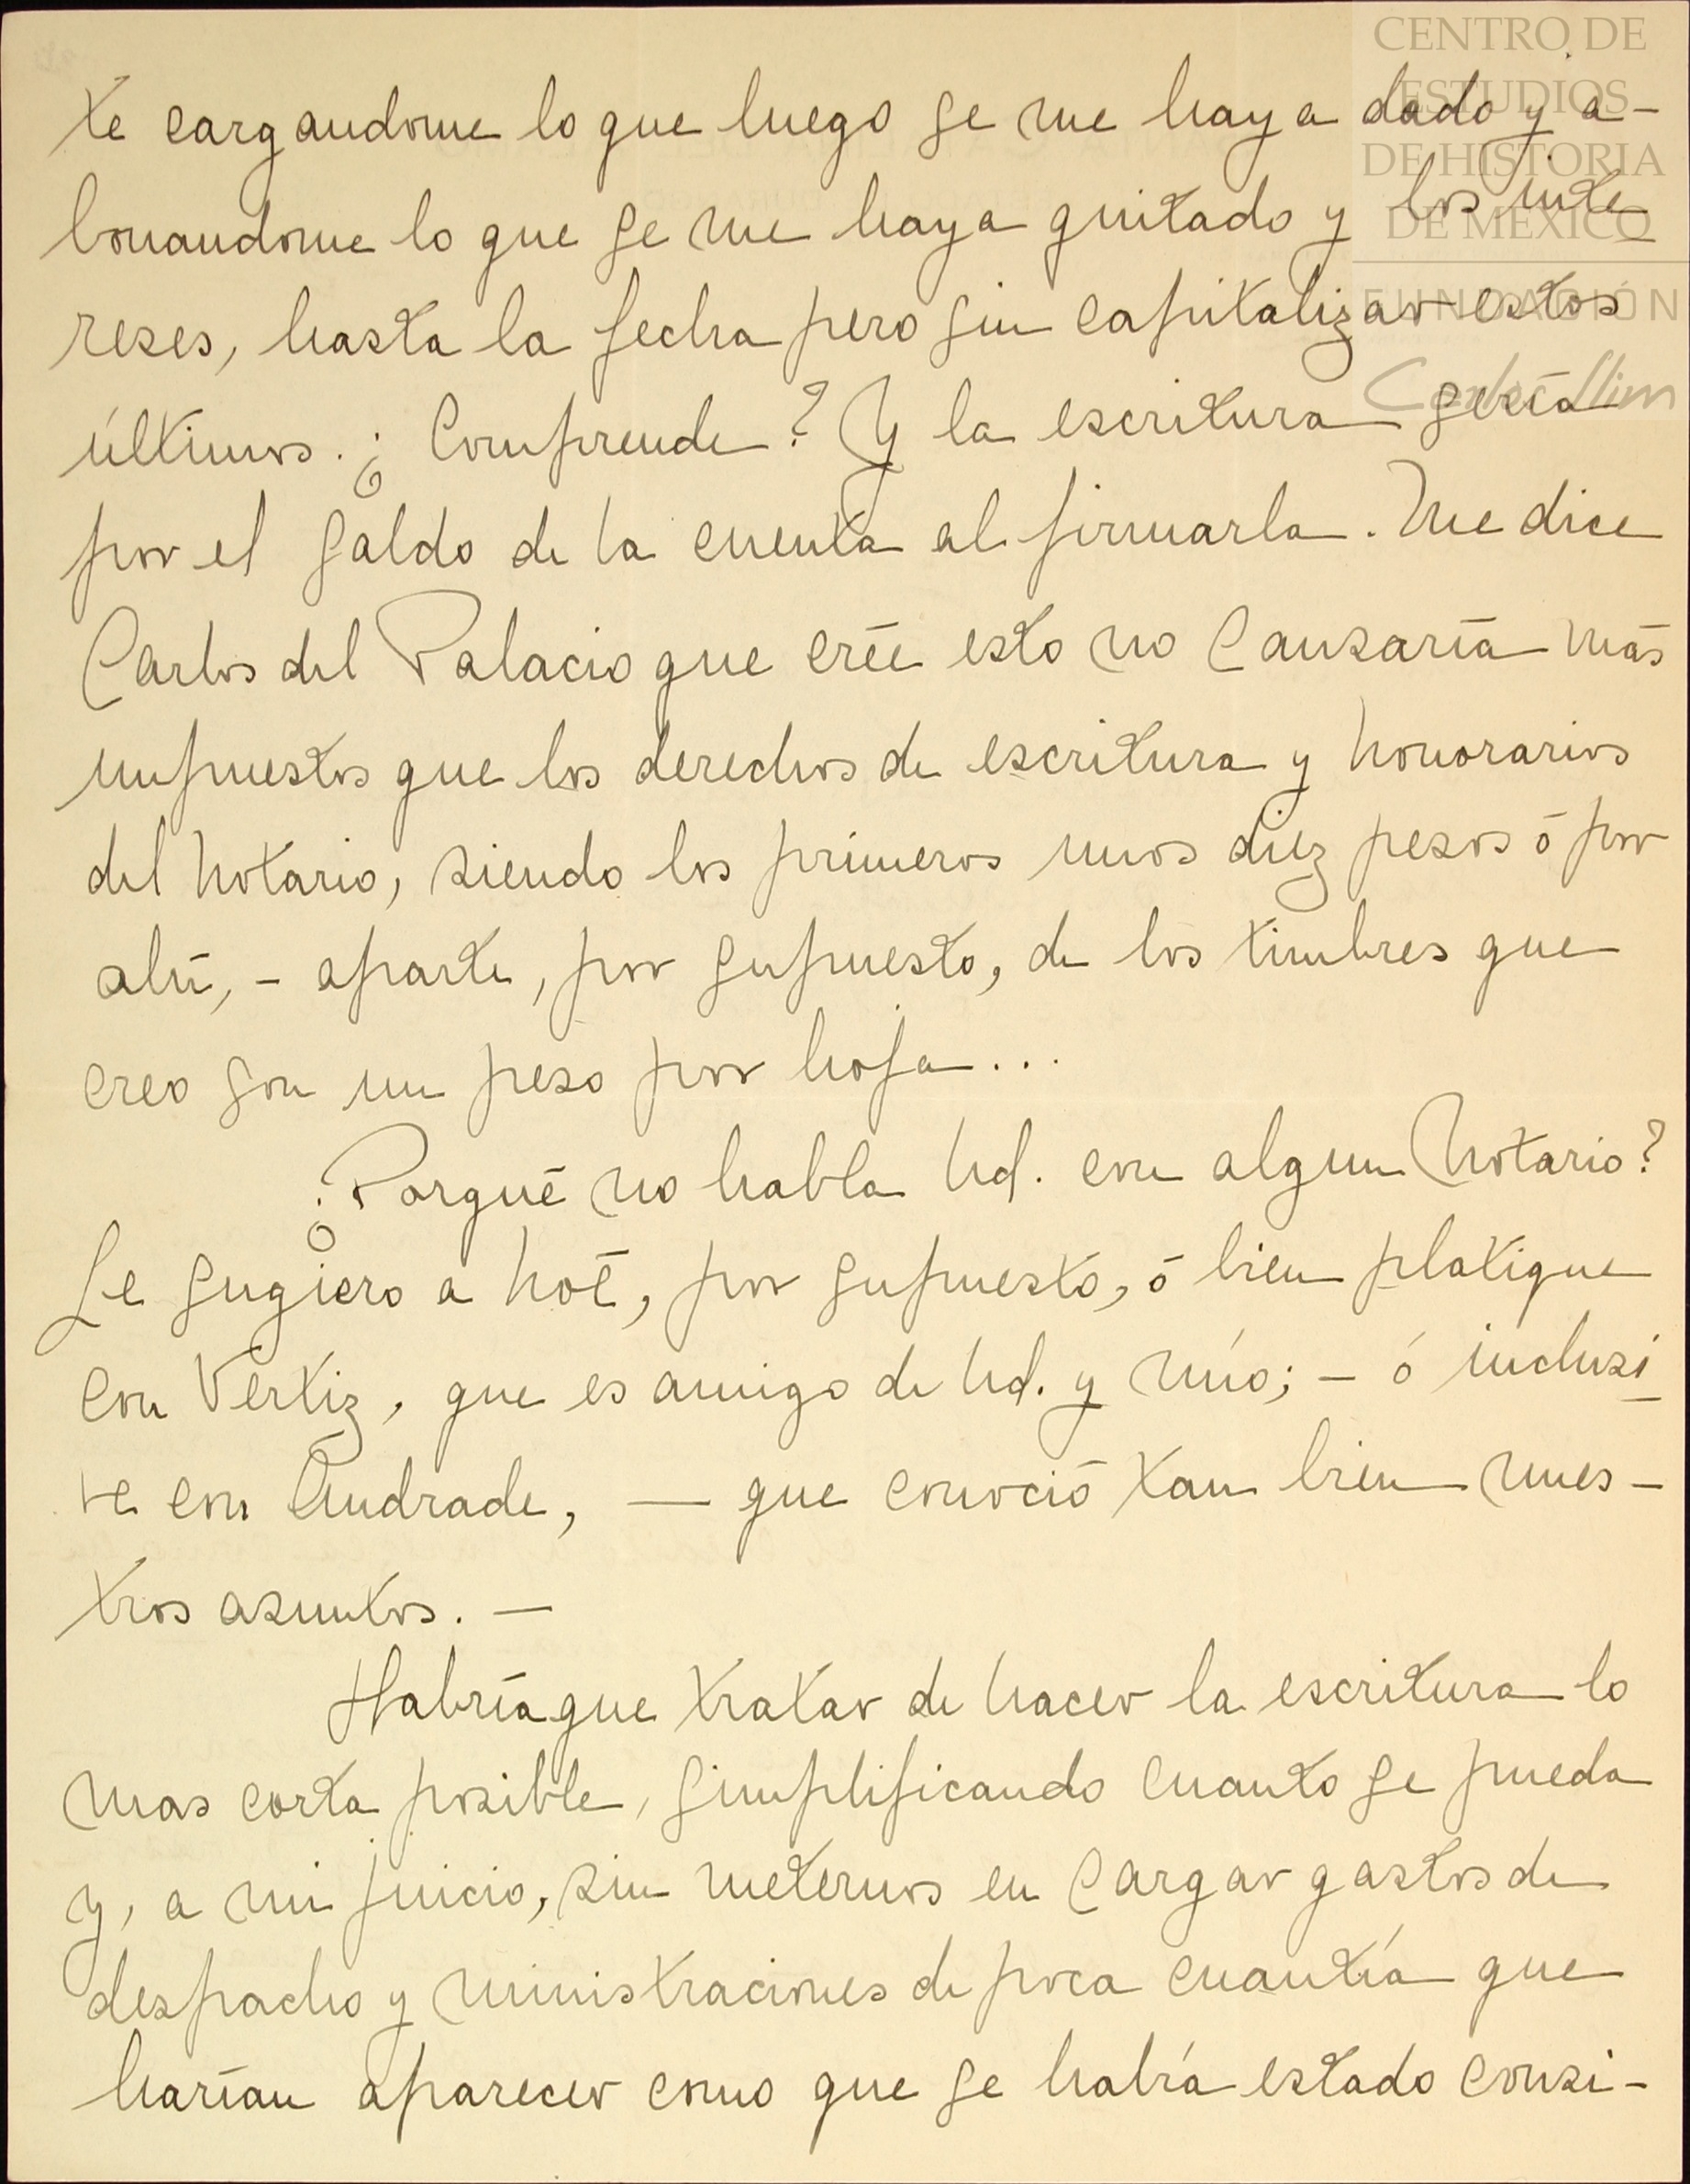 CENTRO DE
ESTUDIOS
DE HISTORIA
DE MÉXICO
FUNDACIÓN
Carlos Slim
te cargandome lo que luego se me haya dado y a-
bonandome lo que se me haya quitado y los inte-
reses, hasta la fecha pero sin capitalizar estos
últimos. ¿Comprende? Y la escritura sería
por el saldo de la cuenta al firmarla. Me dice
Carlos del Palacio que crée esto no causaría más
impuestos que los derechos de escritura y honorarios
del Notario, siendo los primeros unos diez pesos ó por
ahí, - aparte, por supuesto, de los timbres que
creo son un peso por hoja...
¿Porqué no habla Ud. con algun Notario?
Le sugiero a Noé, por supuesto, ó bien platique
con Vertiz, que es amigo de Ud. y mío; - ó inclusi-
ve con Andrade, — que conoció tan bien nues-
tros asuntos. —
Habría que tratar de hacer la escritura lo
mas corta posible, simplificando cuanto se pueda
y, a mi juicio, sin meternos en cargar gastos de
despacho y ministraciones de poca cuantía que
harían aparecer como que se había estado consi-